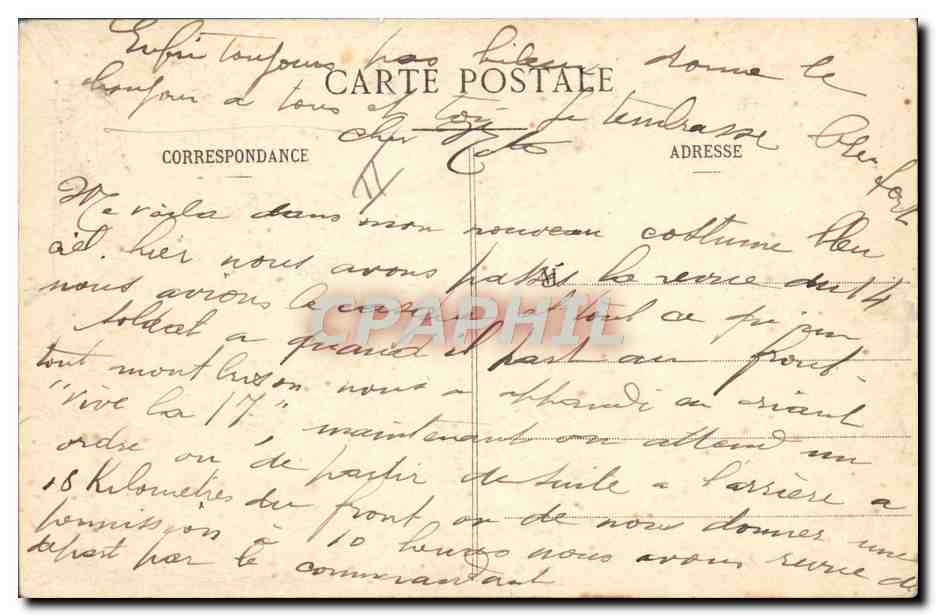 Enfin toujours pas donne le
CARTE POSTALE
bonjour a tous et toi Je t'embrasse bien fort
cher
CORRESPONDANCE
ADRESSE
Me voila dans mon nouveau costume bleu
ciel. hier nous avons passés la revue du 14
nous avions le casque et tout ce qu'un
soldat a quand il part au front.
tout montbrison nous a applaudi en criant
"Vive la 17" maintenant on attend un
ordre ou de partir de suite a l'arrière a
18 Kilometres du front ou de nous donner une
permission à 10 heures nous avons revue de
depart par le commandant
CPAPHIL